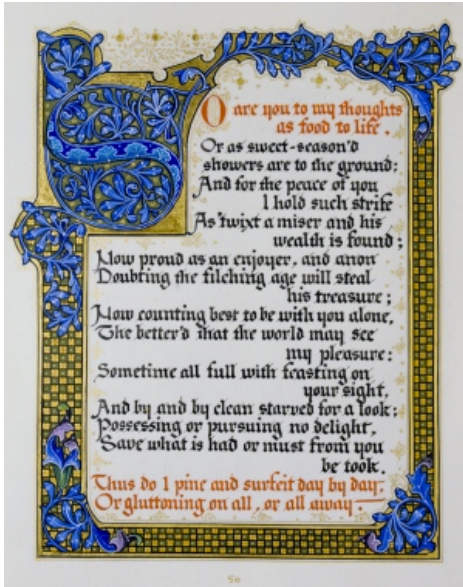 SO are you to my thoughts
as food to life,
Or as sweet-season'd
showers are to the ground;
And for the peace of you
I hold such strife
As 'twixt a miser and his
wealth is found;
Now proud as an enjoyer, and anon
Doubting the filching age will steal
his treasure;
Now counting best to be with you alone,
The better'd that the world may see
my pleasure:
Sometime all full with feasting on
your sight,
And by and by clean starved for a look;
Possessing or pursuing no delight,
Save what is had or must from you
be took.
Thus do I pine and surfeit day by day,
Or gluttoning on all, or all away.